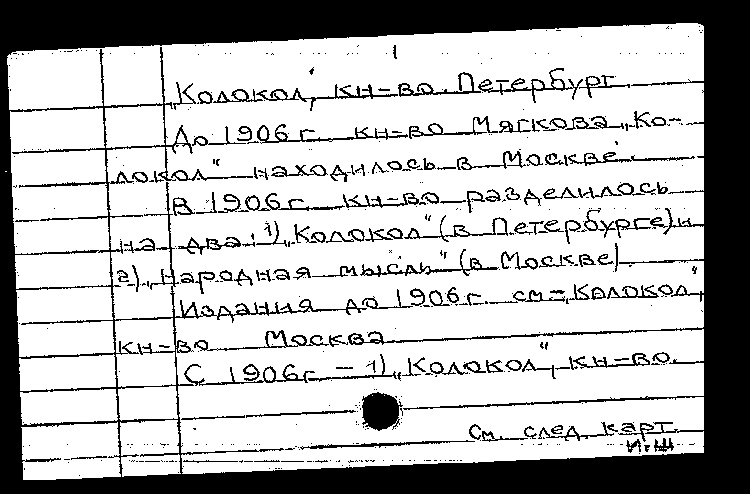 „Колокол", кн-во. Петербург
До 1906 г. кн-во Мягкова „Ко-
локол" находилось в Москве.
В 1906 г. кн-во разделилось
на два: 1) „Колокол" (в Петербурге) и
2) „Народная мысль" (в Москве).
Издания до 1906 г. см. „Колокол",
кн-во Москва
С 1906 г. – 1) „Колокол", кн-во.
См. след. карт.